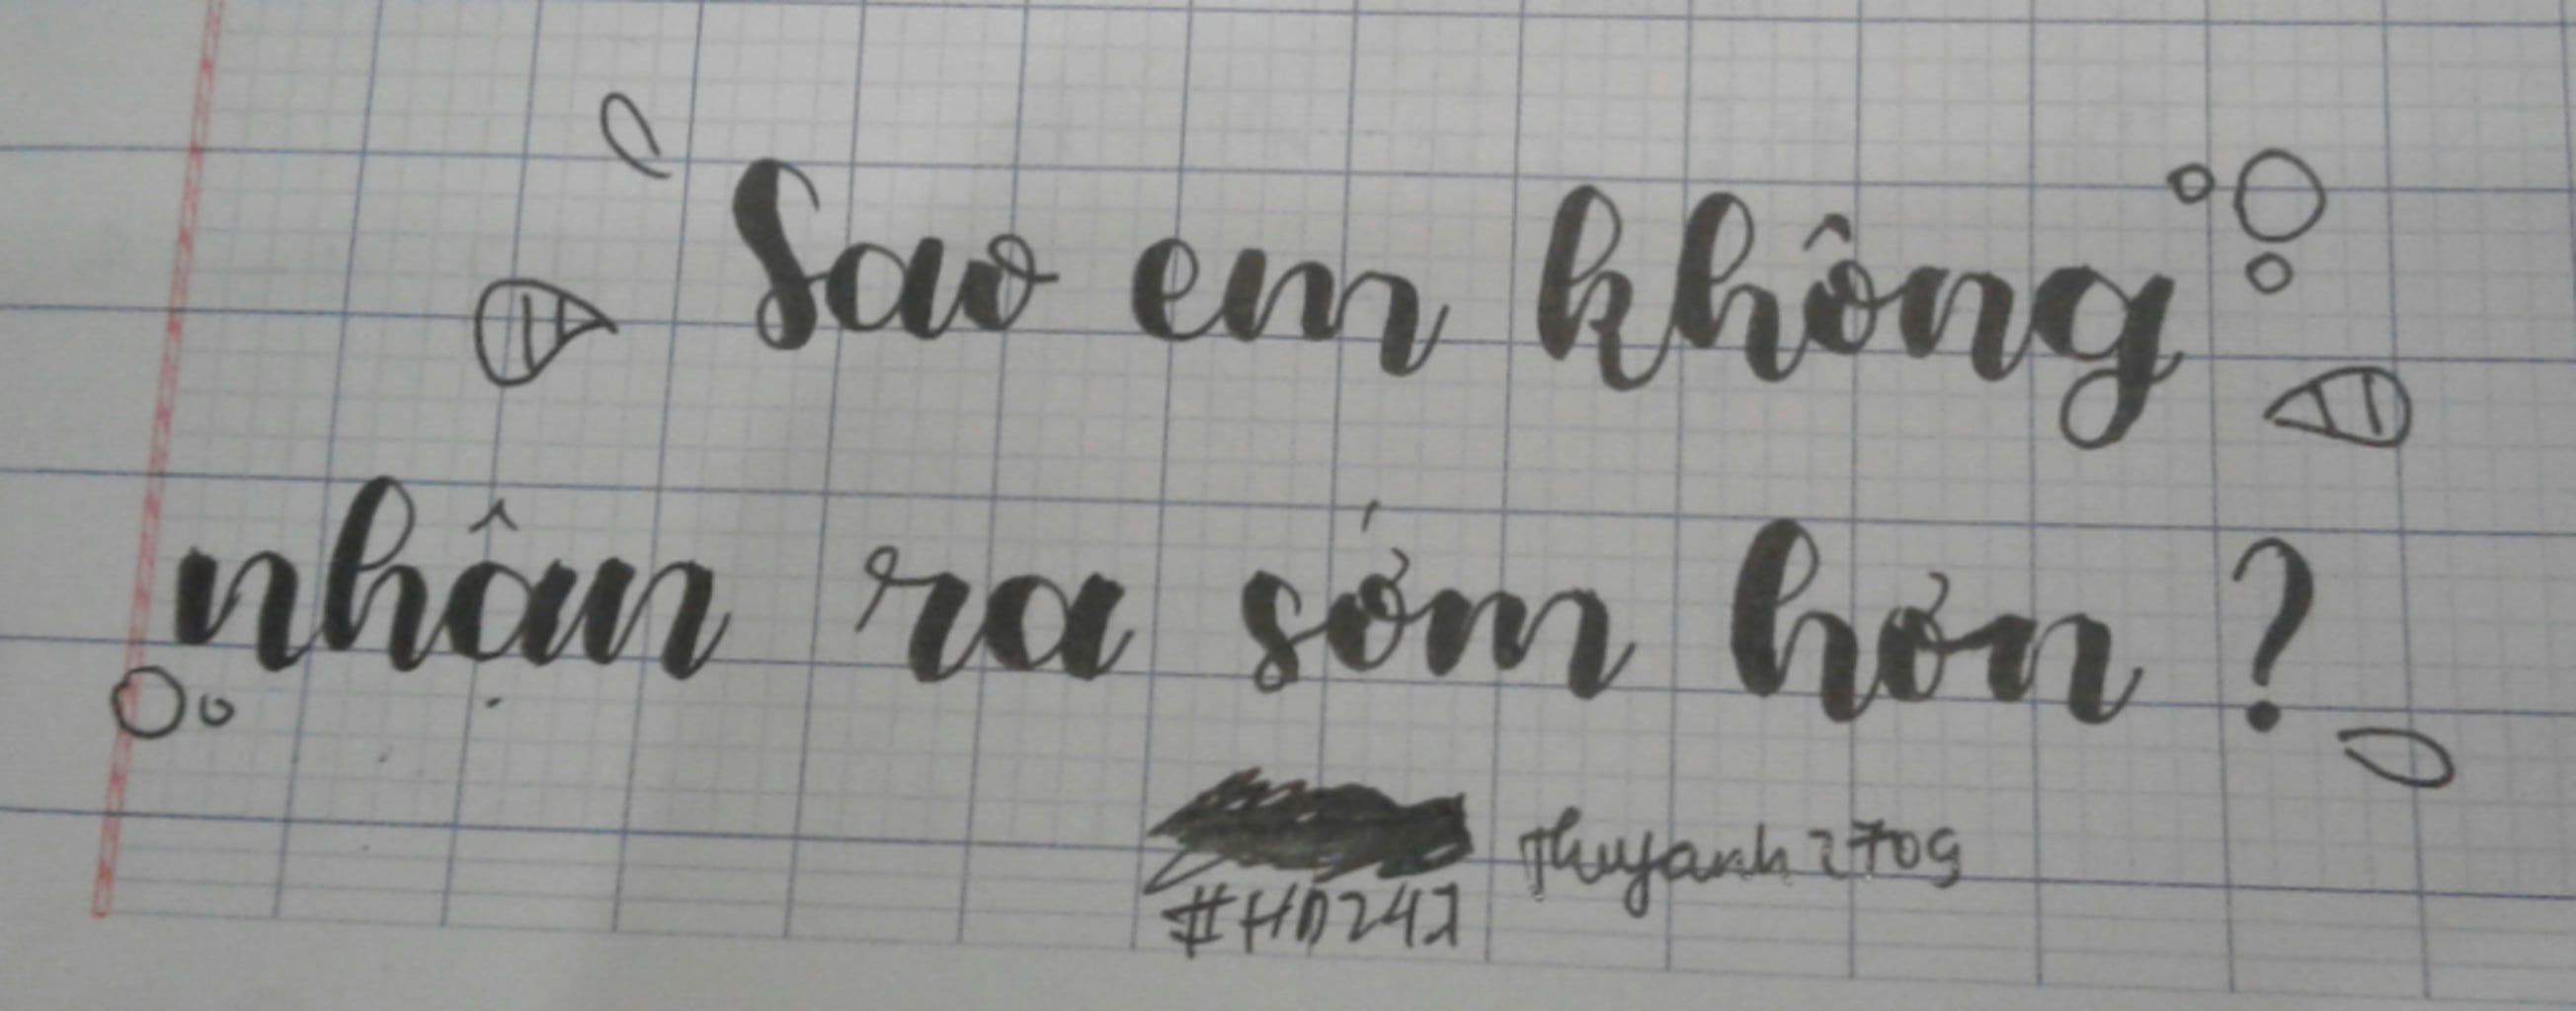 Sao em không
nhận ra sớm hơn ?
thuyanh2709
#HD247